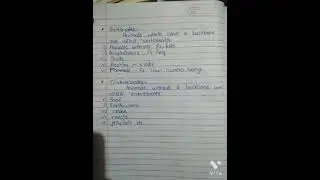 Vertebrates:-
Animals which have a backbone
are called vertebrates
i) Aquatic vertebrates Ex: fish
ii) Amphibians Ex: frog
iii) Birds
iv) Reptiles - snake
v) Mammals - Ex: cow, humans
Invertebrates:-
Animals without a backbone are
called invertebrates
i) Snail
ii) Earthworm
v) jellyfish etc